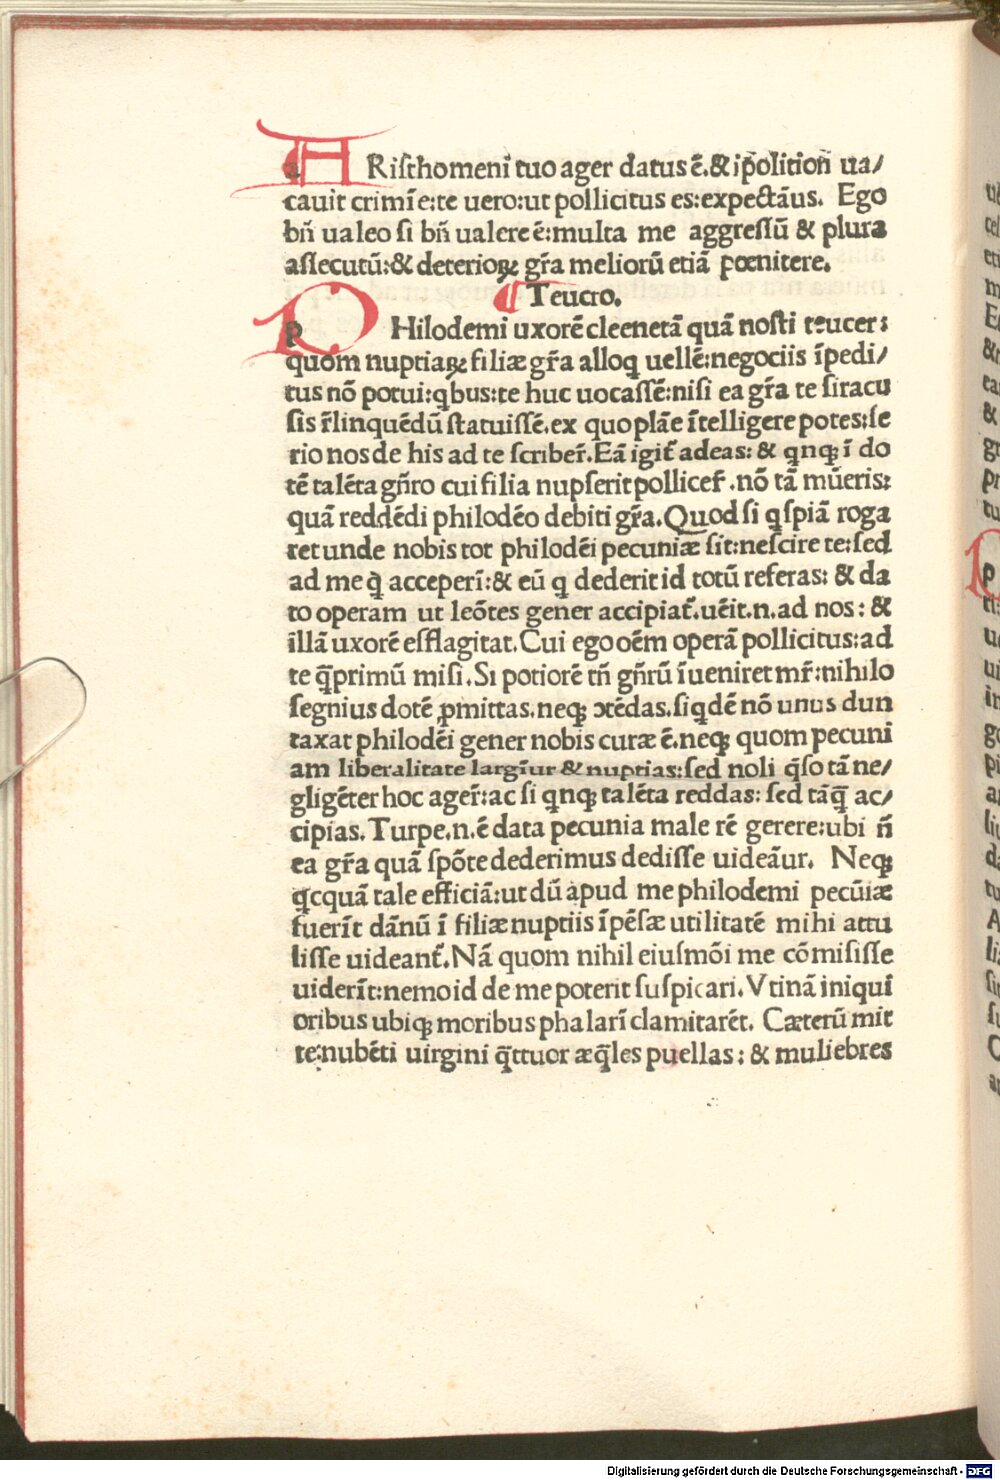 ARiſthomeni tuo ager datus ē.&ip̄olition̄ ua/
cauit crimīe:te uero:ut pollicitus es:expectāus. Ego
bn̄ ualeo ſi bn̄ ualere ē:multa me aggreſſū & plura
aſſecutū:& deterioꝝ gr̄a meliorū etiā pœnitere.
¶ Teucro.
PHilodemi uxorē cleenetā quā noſti teucer:
quom nuptiaꝝ filiæ gr̄a alloq uellē:negociis īpedi/
tus nō potui:qbus:te huc uocaſſē:niſi ea gr̄a te ſiracu
ſis r̄linquēdū ſtatuiſſē.ex quo plāe ītelligere potes:ſe
rio nos de his ad te ſcriber̄.Eā igit̄ adeas: & qnqꝫ ī do
tē talēta gn̄ro cui filia nupſerit pollicer̄.nō tā mūeris:
quā reddēdi philodēo debiti gr̄a.Quod ſi qſpiā roga
ret unde nobis tot philodēi pecuniæ ſit:neſcire te:ſed
ad me q̄ acceperī:& eū q dederit id totū referas: & da
to operam ut leōtes gener accipiat̄.uēit.n.ad nos: &
īllā uxorē efflagitat.Cui ego oēm operā pollicitus:ad
te q̄primū miſi.Si potiorē tn̄ gn̄rū īueniret mr̄:nihilo
ſegnius dotē ꝓmittas.neqꝫ ↄtēdas.ſiqdē nō unus dun
taxat philodēi gener nobis curæ ē.neqꝫ quom pecuni
am liberalitate largīur & nuptias:ſed noli q̄ſo tā ne/
gligēter hoc ager̄:ac ſi qnqꝫ talēta reddas: ſed tāq̄ ac/
cipias.Turpe.n.ē data pecunia male rē gerere:ubi n̄
ea gr̄a quā ſpōte dederimus dediſſe uideāur. Neqꝫ
qcquā tale efficiā:ut dū apud me philodemi pecūiæ
fuerīt dānū ī filiæ nuptiis īpēſæ utilitatē mihi attu
liſſe uideant̄.Nā quom nihil eiuſmōi me cōmiſiſſe
uiderīt:nemo id de me poterit ſuſpicari.Vtinā iniqui
oribus ubiqꝫ moribus phalarī clamitarēt. Cæterū mit
te:nubēti uirgini q̄ttuor æq̄les puellas: & muliebres
Digitalisierung gefördert durch die Deutsche Forschungsgemeinschaft - DFG